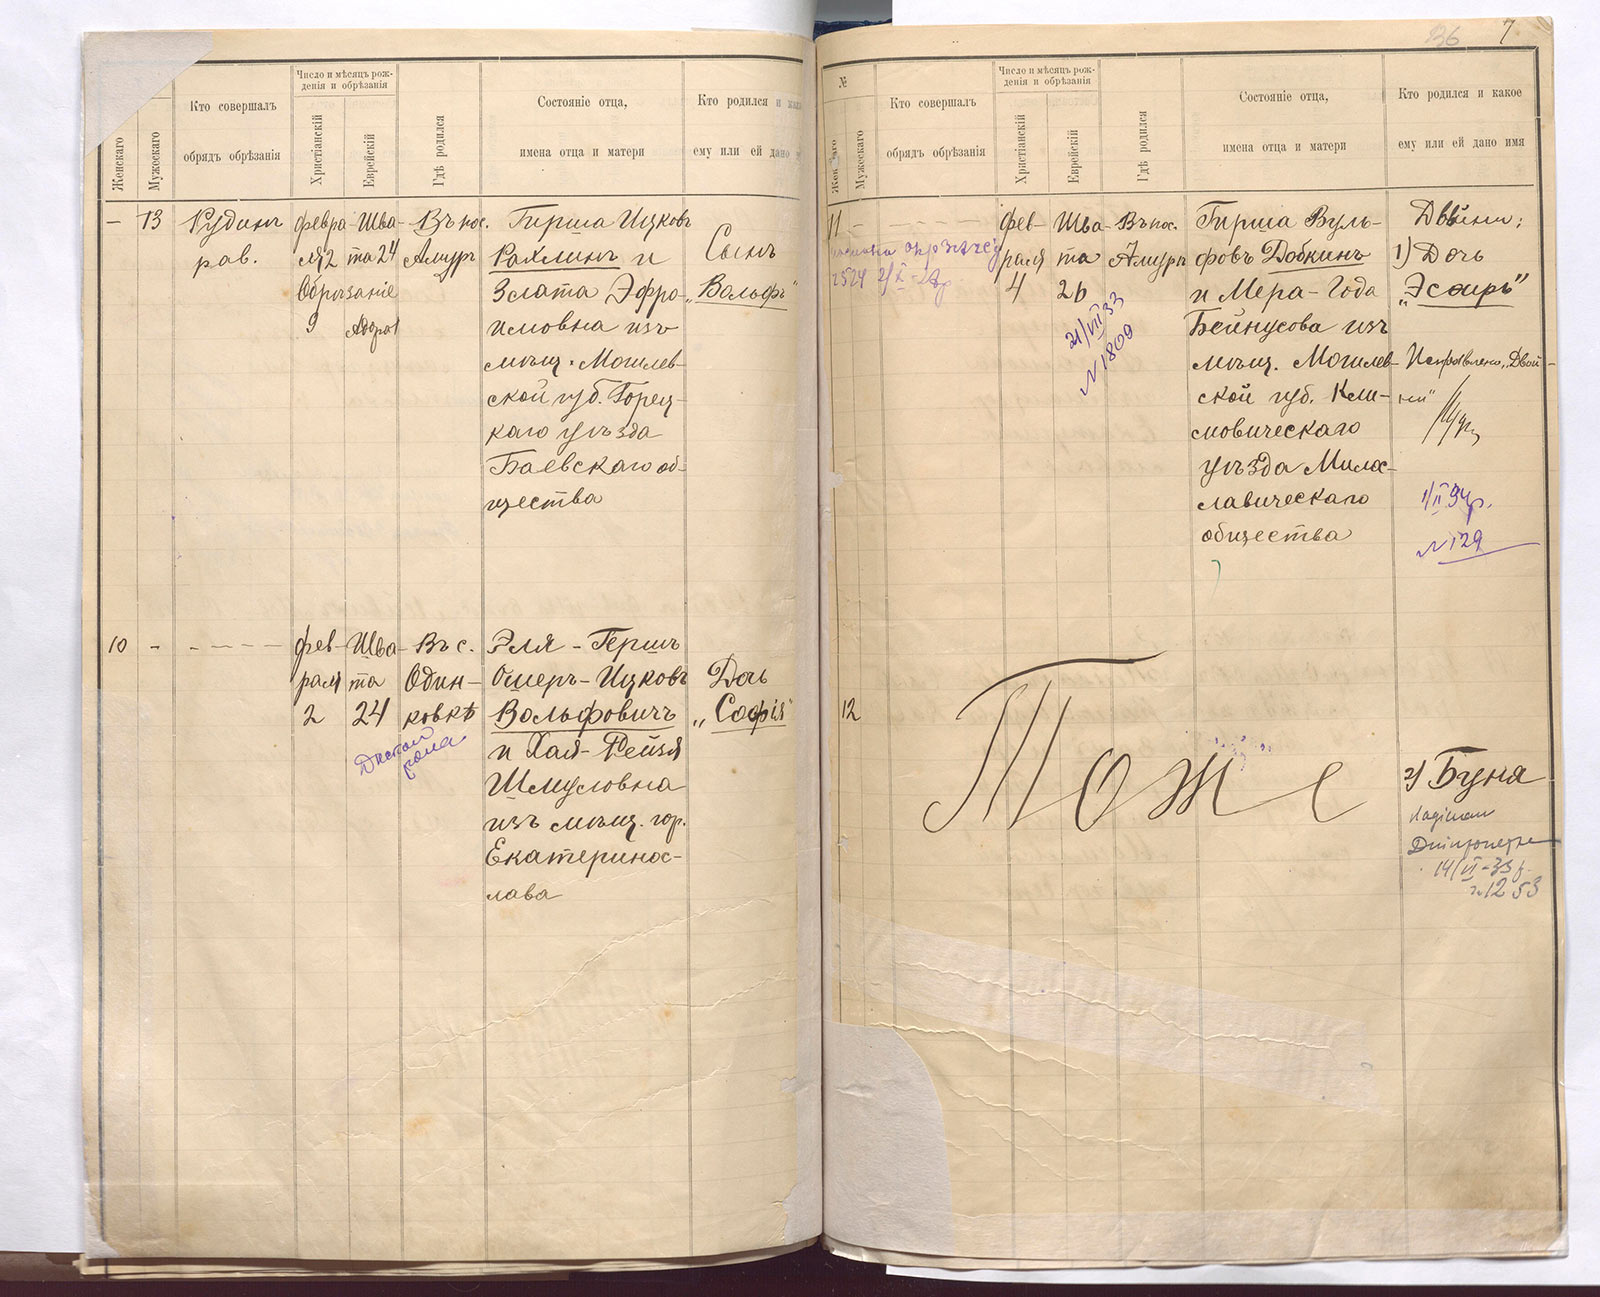 Женскаго
Мужескаго
Кто совершалъ
обрядъ обрѣзанія
Число и мѣсяцъ рож-
денія и обрѣзанія
Христіанскій
Еврейскій
Гдѣ родился
Состояніе отца,
имена отца и матери
Кто родился и
ему или ей дано
— 13 Рудинъ
рав.
февра-
ля 2
Обрѣзаніе
9
Шва-
та 24
Адора 1
Въ пос.
Амурѣ
Гирша Ицковъ
Рахлинъ и
Злата Эфро-
имовна изъ
мѣщ. Могилев-
ской губ. Горец-
каго уѣзда
Баевскаго об-
щества
Сынъ
„Вольфъ"
10 - - - - -
фев-
раля
2
Шва-
та
24
Въ с.
Один-
ковкѣ
Эля - Гершъ
Ошеръ - Ицковъ
Вольфовичъ
и Хая - Рейзя
Шмуловна
изъ мѣщ. гор.
Екатеринос-
лава
Дочь
„Софія"
36 7
№
Женскаго
Мужескаго
Кто совершалъ
обрядъ обрѣзанія
Число и мѣсяцъ рож-
денія и обрѣзанія
Христіанскій
Еврейскій
Гдѣ родился
Состояніе отца,
имена отца и матери
Кто родился и какое
ему или ей дано имя
11 - - - - -
2524 2/X-
фев-
раля
4
Шва-
та
26
21/VII 33
N 1809
Въ пос.
Амурѣ
Гирша Вуль-
фовъ Добкинъ
и Мера - Года
Бейнусова изъ
мѣщ. Могилев-
ской губ. Кли-
мовическаго
уѣзда Милос-
лавическаго
общества
Двойни:
1) Дочь
„Эсѳирь"
Исправлено „Двой-
ни"
1/II 34р.
N 129
12
Тоже
2) Буня
14/VI-33 р.
N 1253